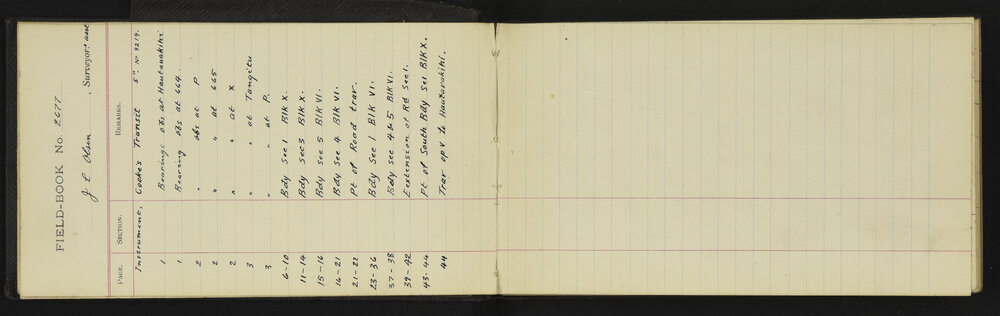 FIELD-BOOK No. 2677
J. C. Olsen, Surveyor
PAGE. SECTION. REMARKS.
Instrument, Cooke's Transit 5" No 9219.
1 Bearings obs at Hautanakihi
1 Bearing obs at 664.
2 " obs at P
2 " " at 665
2 " " at X
3 " " at Tangitu
3 " " at P.
6-10 Bdy Sec 1 Blk X.
11-14 Bdy Sec 3 Blk X.
15-16 Bdy Sec 5 Blk VI.
16-21 Bdy Sec 4 Blk VI.
21-22 Pt of Road trav.
23-36 Bdy Sec 1 Blk VI.
37-38 Bdy Sec 4 & 5 Blk VI.
39-42 Extension of Rd Sec 1.
43-44 Pt of South Bdy Sec 1 Blk X.
44 Trav op V to